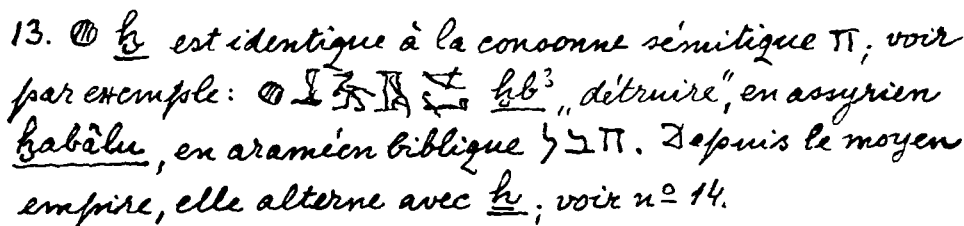 13. 𓐍 ḫ est identique à la consonne sémitique ח; voir
par exemple: 𓐍𓃀 ḫb³ „détruire”, en assyrien
ḫabâlu, en araméen biblique חבל. Depuis le moyen
empire, elle alterne avec ẖ; voir nº 14.